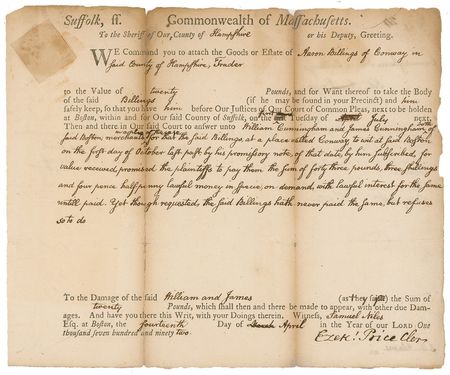 Suffolk, ss. Commonwealth of Massachusetts.
To the Sheriff of Our County of Hampshire or his Deputy, Greeting.
WE Command you to attach the Goods or Estate of Aaron Billings of Conway in
said County of Hampshire, Trader
to the Value of twenty Pounds, and for Want thereof to take the Body
of the said Billings (if he may be found in your Precinct) and him
safely keep, so that you have him before Our Justices of Our Court of Common Pleas, next to be holden
at Boston, within and for Our said County of Suffolk, on the Tuesday of July next.
Then and there in Our said Court to answer unto William Cunningham and James Cunningham, both of
said Boston, merchants the said Billings at a place called Conway, to wit at said Boston
on the first day of October last past by his promissory note of that date, by him subscribed, for
value received, promised the plaintiffs to pay them the sum of forty three pounds, three shillings
and four pence half penny lawful money in specie, on demand, with lawful interest for the same
untill paid. Yet though requested the said Billings hath never paid the same, but refuses
so to do
To the Damage of the said William and James (as they say) the Sum of
twenty Pounds, which shall then and there be made to appear, with other due Dam-
ages. And have you there this Writ, with your Doings therein. Witness, Samuel Niles
Esq. at Boston, the fourteenth Day of April in the Year of our LORD One
thousand seven hundred and ninety two
Ezek: Price Cler